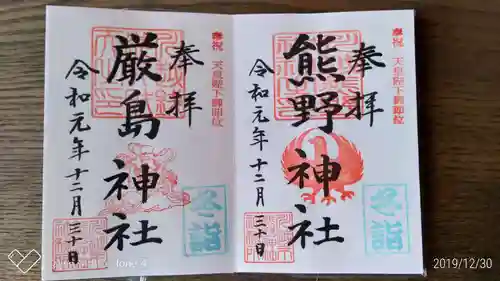 奉祝 天皇陛下御即位
奉拝
熊野神社
令和元年十二月三十日
冬詣
奉祝 天皇陛下御即位
奉拝
厳島神社
令和元年十二月三十日
冬詣
2019/12/30